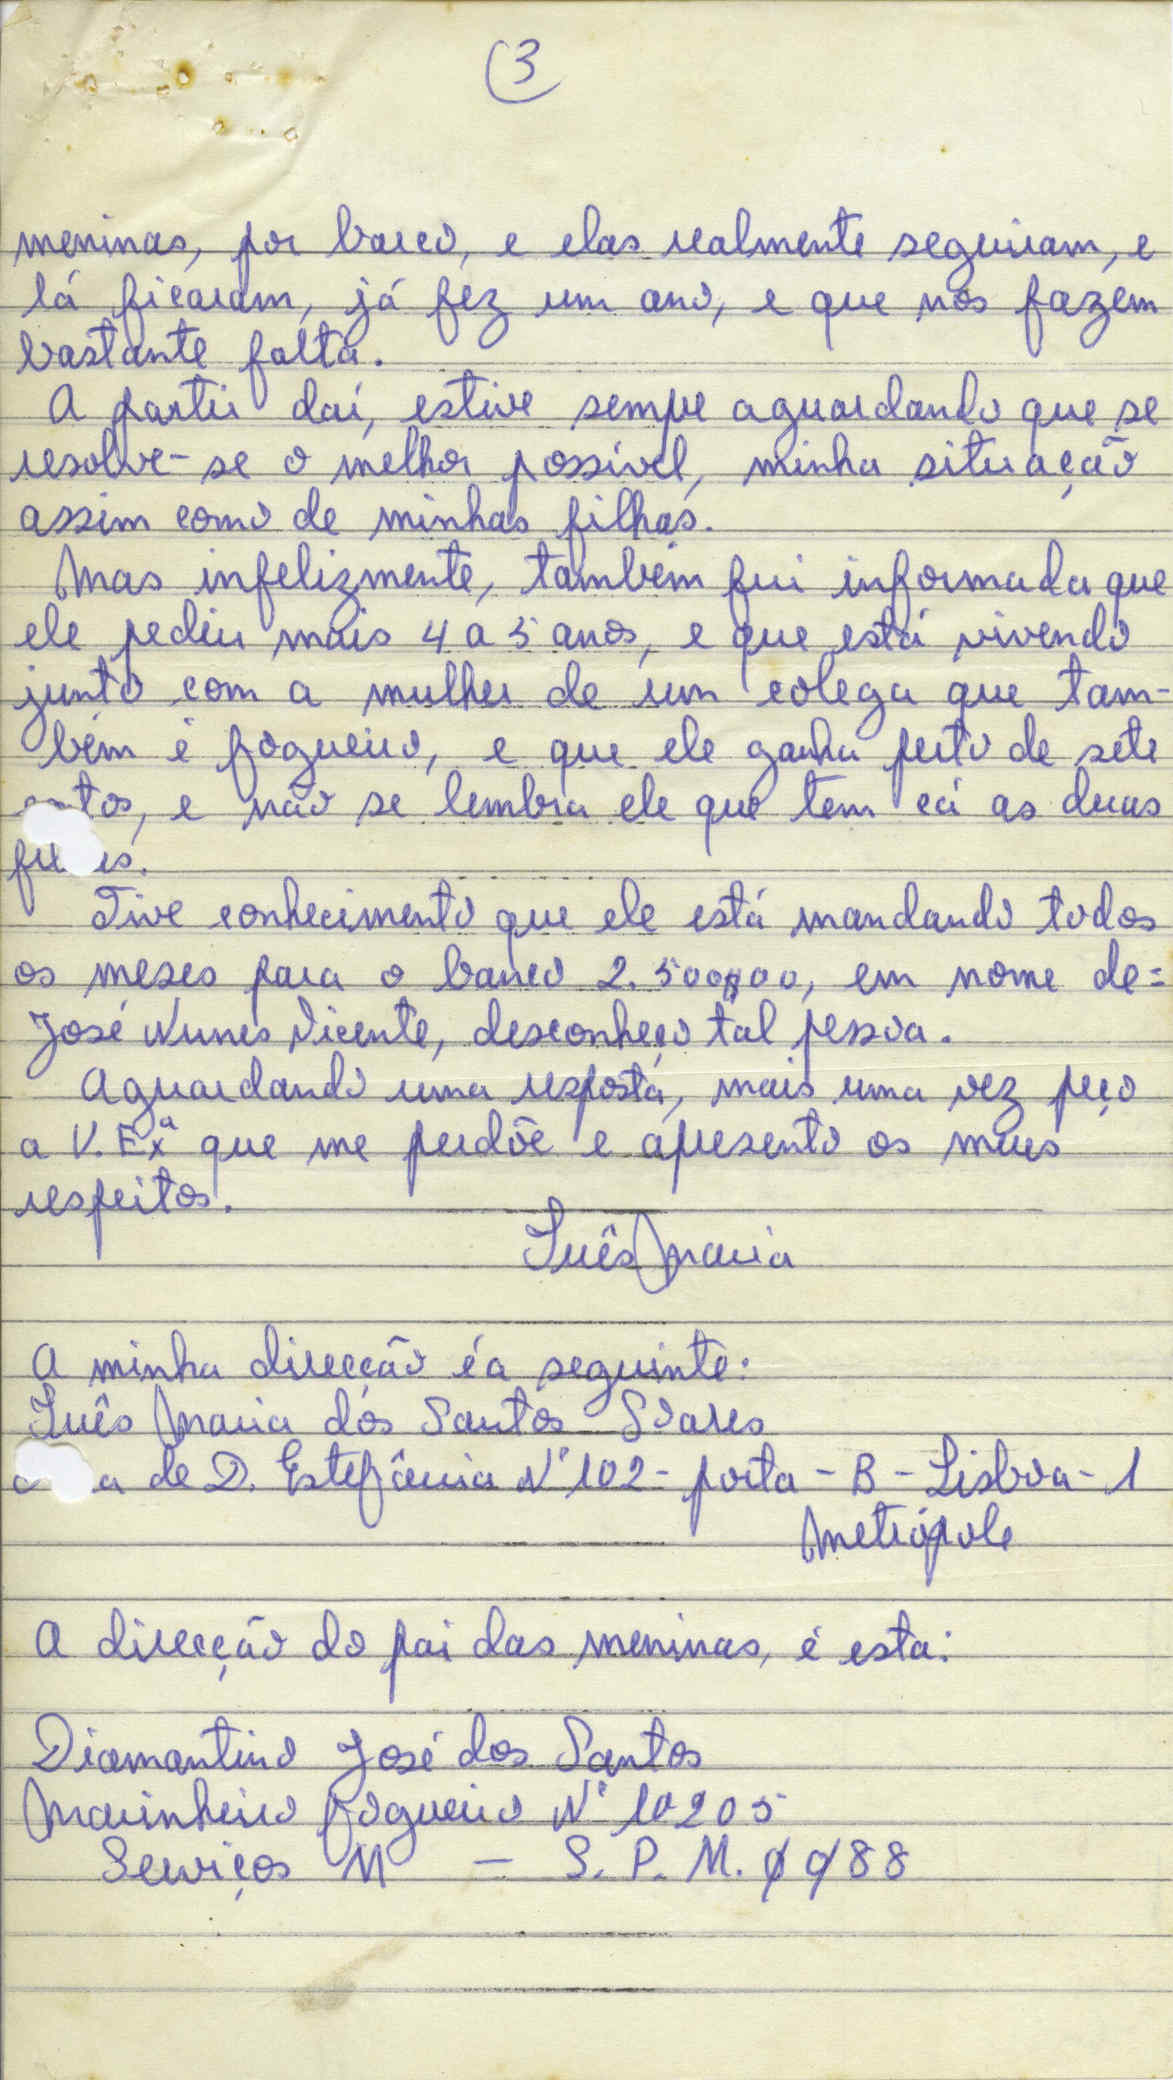 3
meninas, por barco, e elas realmente seguiram, e
lá ficaram, já fez um ano, e que nos fazem
bastante falta.
A partir daí, estive sempre aguardando que se
resolve-se o melhor possível, minha situação
assim como de minhas filhas.
Mas infelizmente, também fui informada que
ele pediu mais 4 a 5 anos, e que está vivendo
junto com a mulher de um colega que tam-
bém é fogueiro, e que ele ganha perto de sete
e não se lembra ele que tem cá as duas
Tive conhecimento que ele está mandando todos
os meses para o banco 2.500$00, em nome de=
José Nunes Vicente, desconheço tal pessoa.
Aguardando uma resposta, mais uma vez peço
a V. Exª que me perdõe e apresento os meus
respeitos.
Inês Maria
A minha direcção é a seguinte:
Inês Maria dos Santos Soares
a de D. Estefânia Nº 102 - porta - B - Lisboa - 1
Metrópole
A direcção do pai das meninas, é esta:
Diamantino José dos Santos
Marinheiro fogueiro Nº 10205
Serviços M - S. P. M. 0088